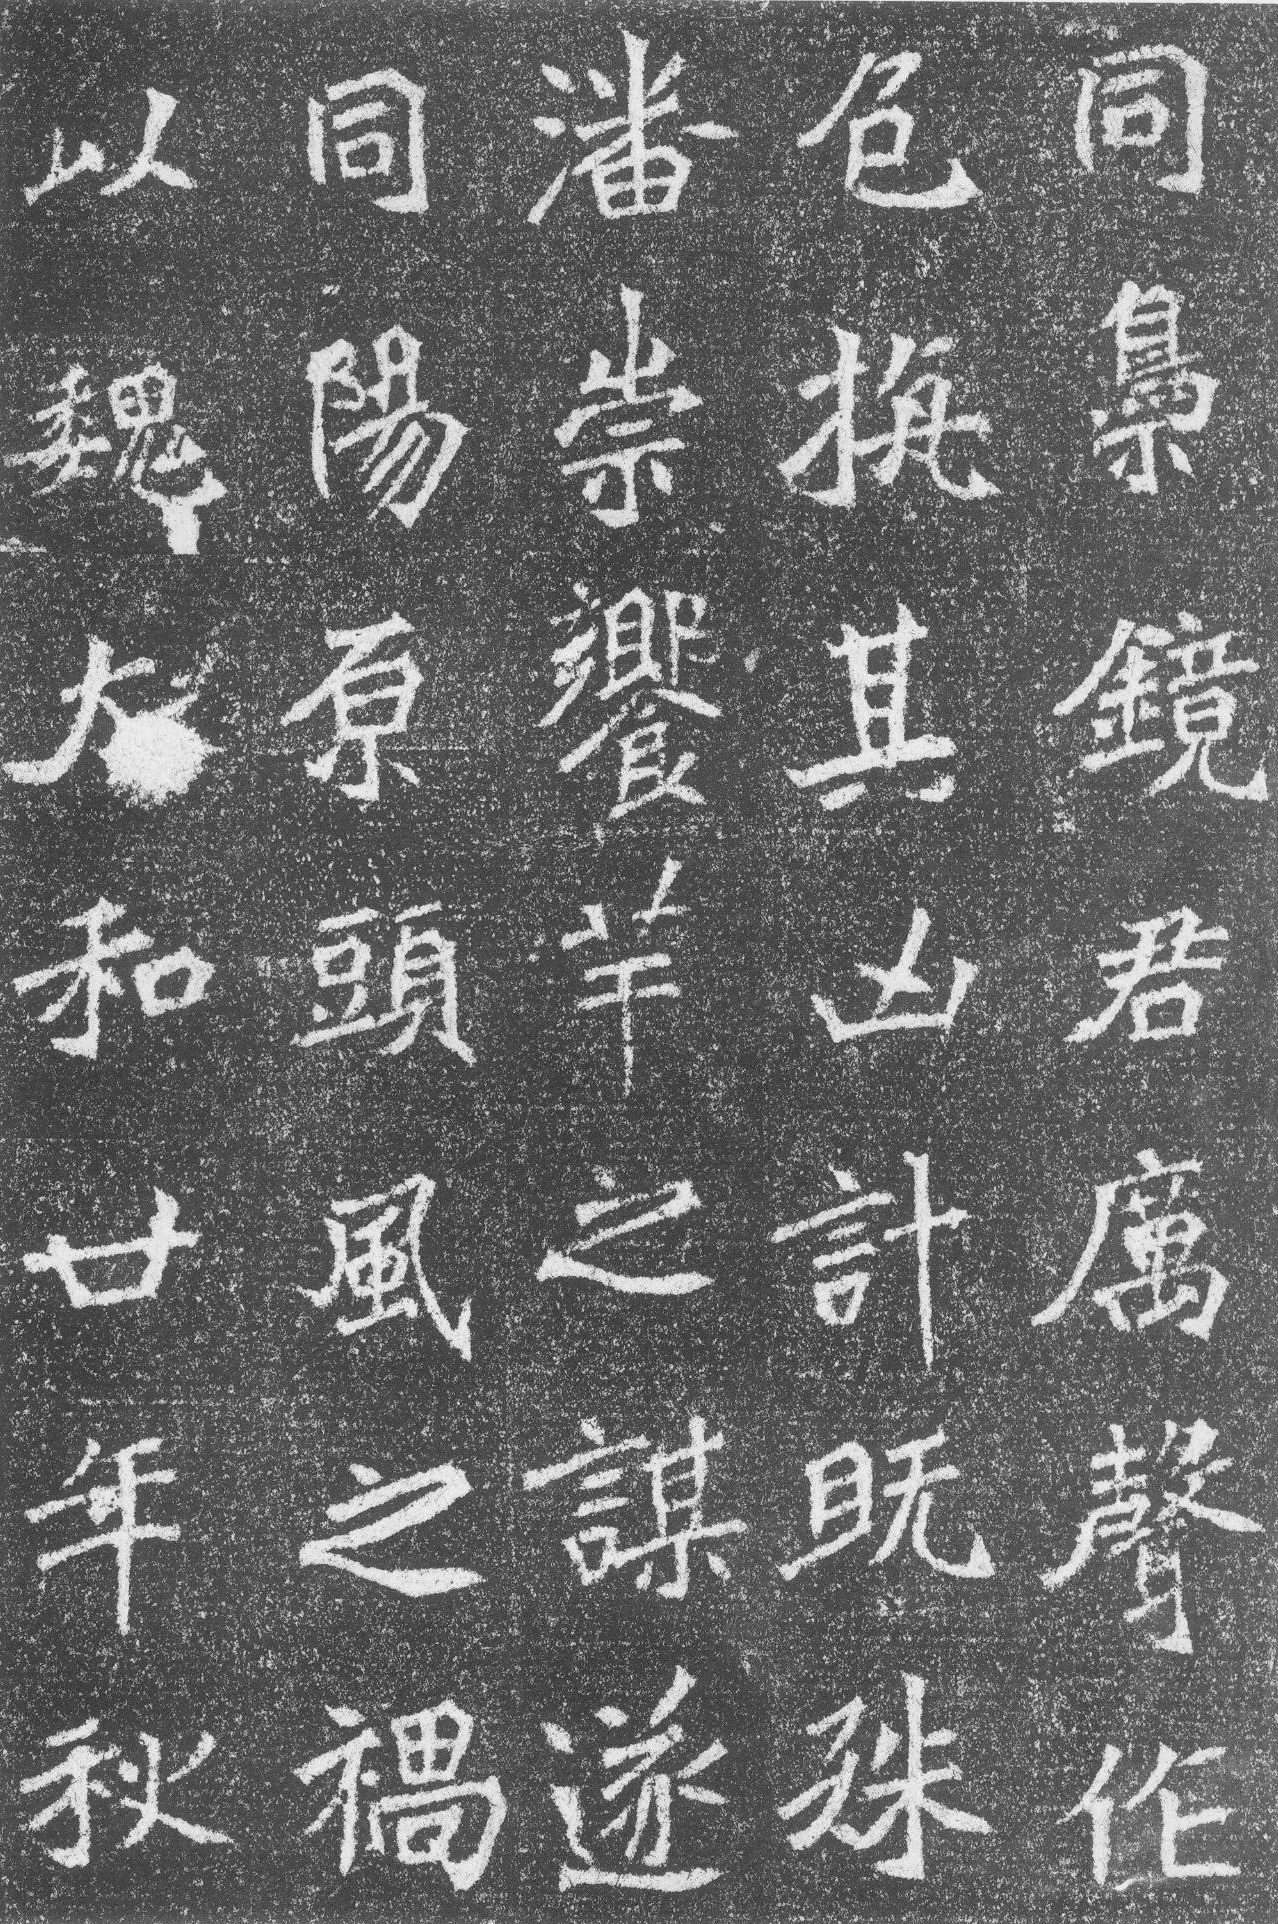 同梟鏡君厲聲作
色執其凶計既殊
潘崇饗羊之謀遂
同陽原頭風之禍
以魏太和廿年秋